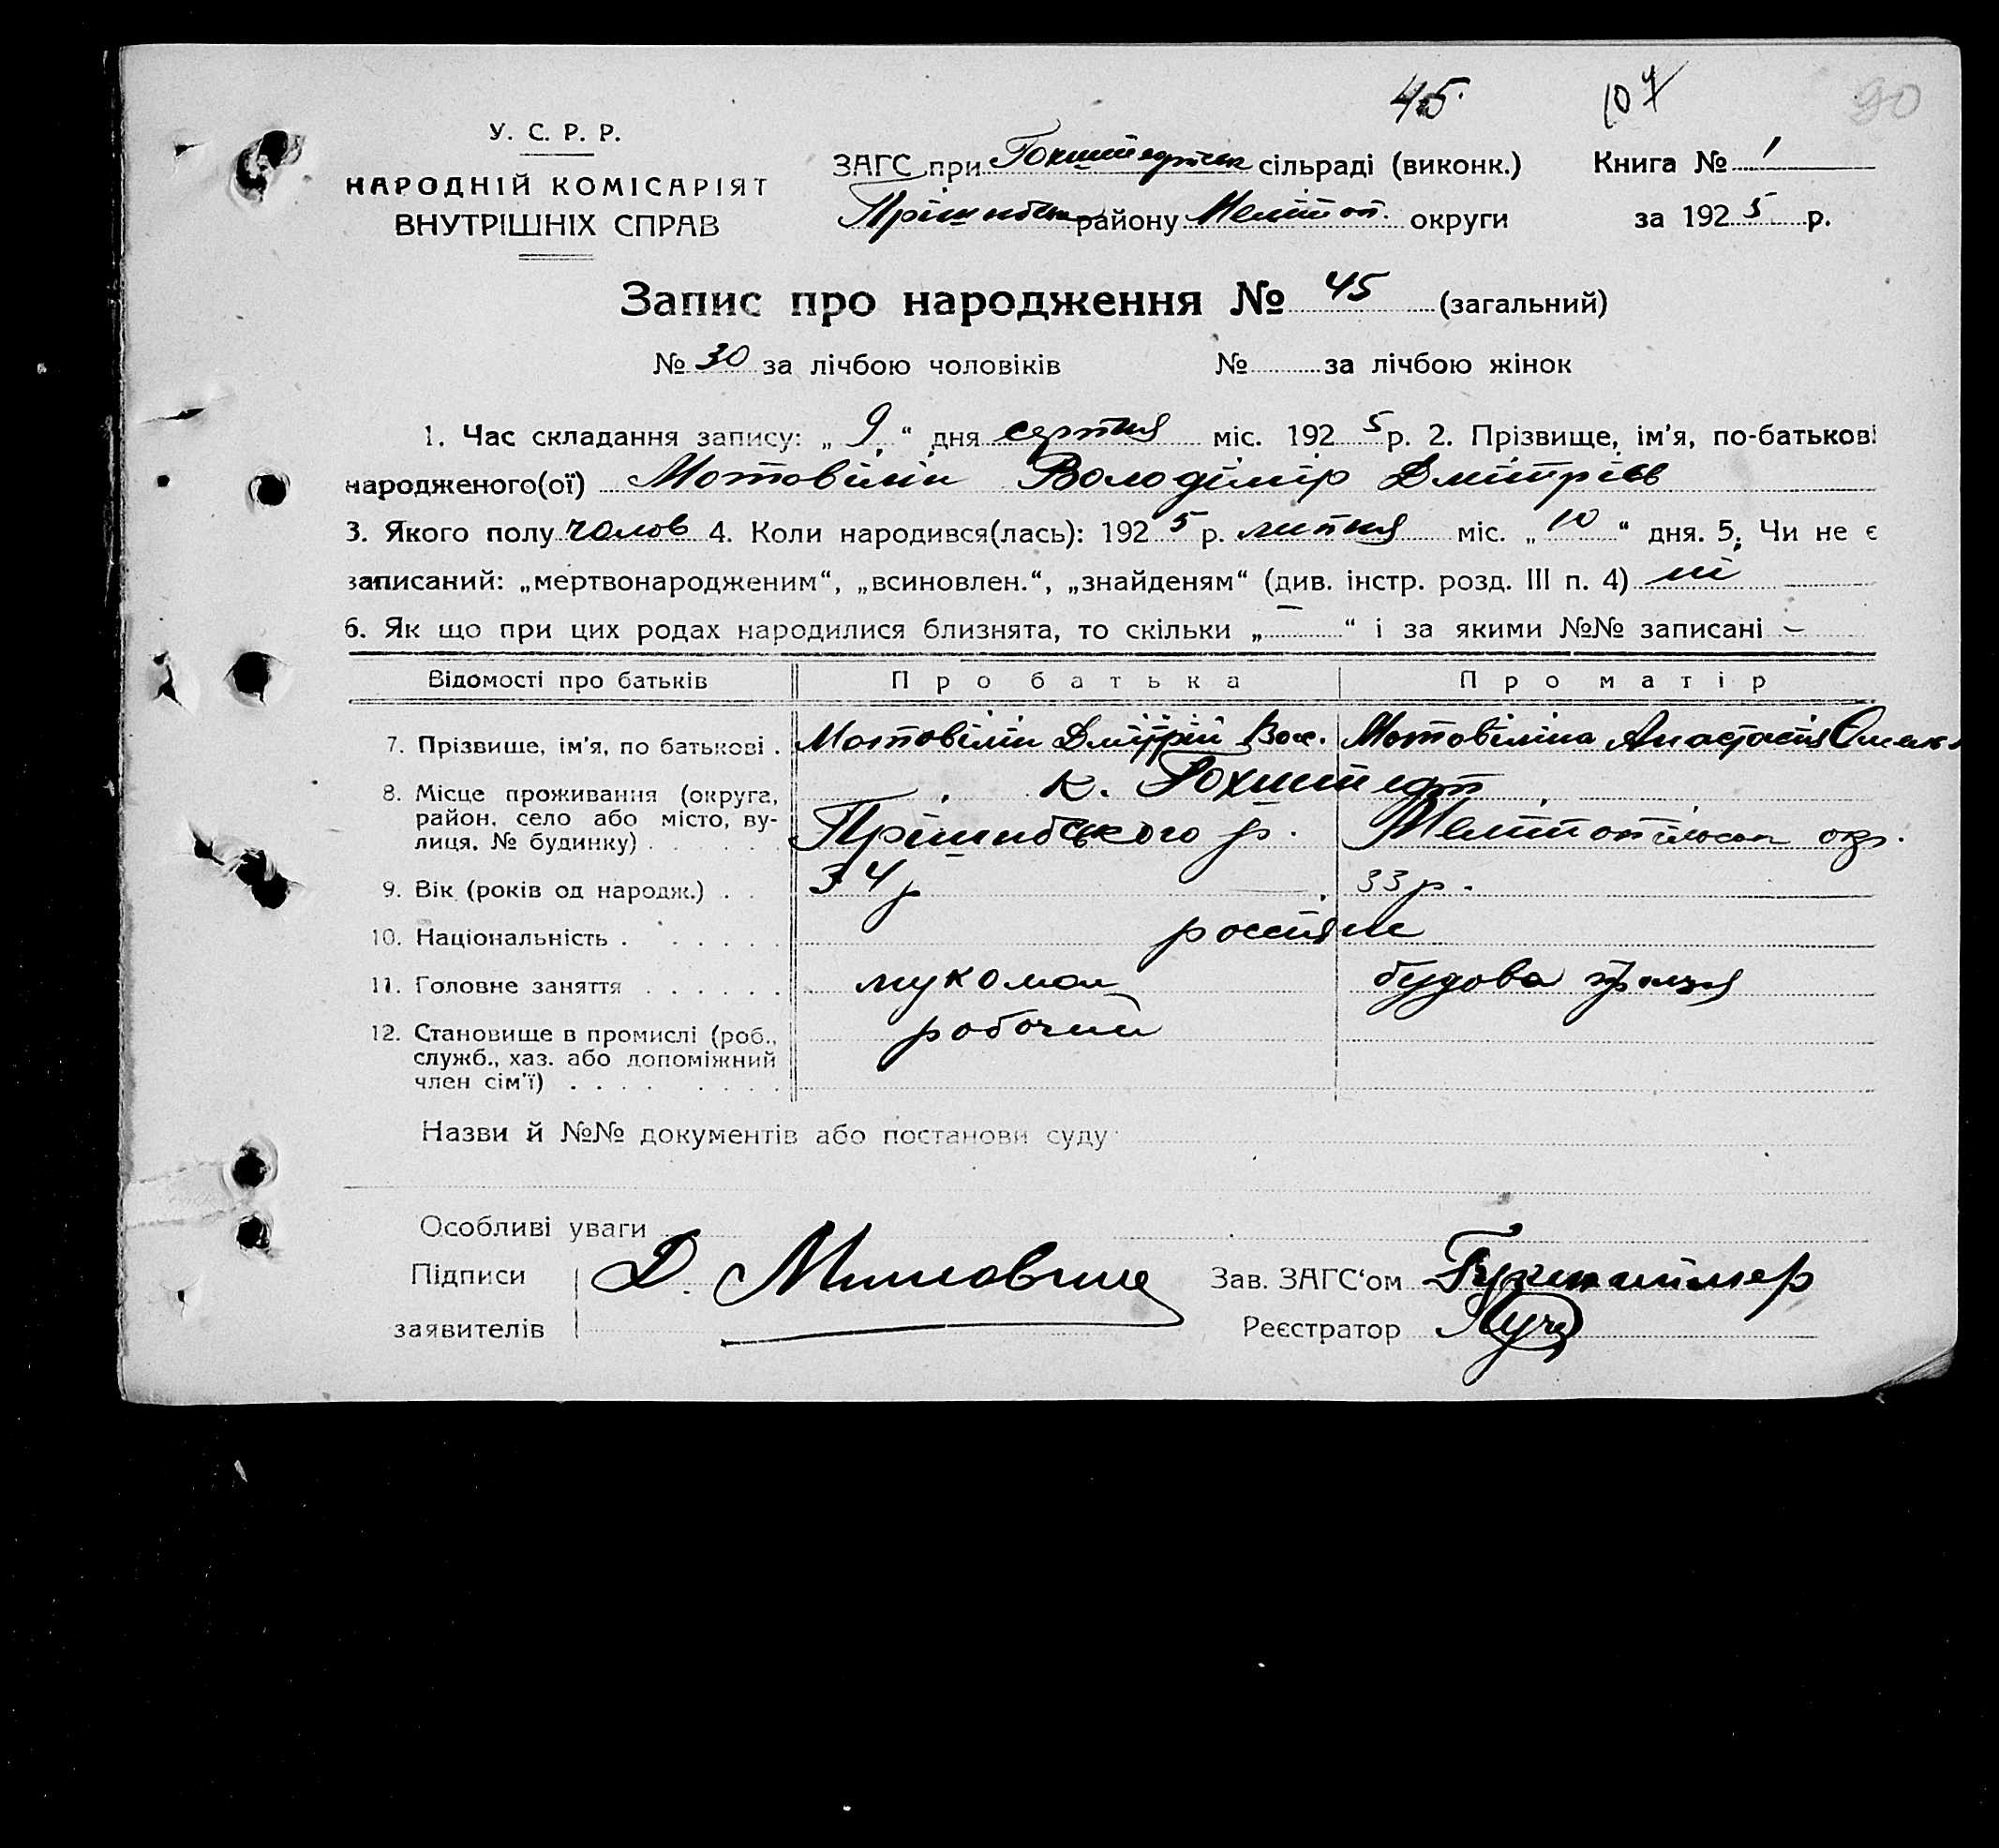 45. 107 90
У. С. Р. Р.
НАРОДНІЙ КОМІСАРІЯТ
ВНУТРІШНІХ СПРАВ
ЗАГС при Гохштедтськ сільраді (виконк.) Книга № 1
Прішибськ району Мелітоп. округи за 1925 р.
Запис про народження № 45 (загальний)
№ 30 за лічбою чоловіків № за лічбою жінок
1. Час складання запису: „ 9 “ дня серпня міс. 1925 р. 2. Прізвище, ім'я, по-батькові
народженого(ої) Мотовілін Володімір Дмітрієв
3. Якого полу чолов 4. Коли народився(лась): 1925 р. липня міс. „ 10 “ дня. 5. Чи не є
записаний: „мертвонародженим“, „всиновлен.“, „знайденям“ (див. інстр. розд. III п. 4) ні
6. Як що при цих родах народилися близнята, то скільки „ – “ і за якими №№ записані –
Відомості про батьків Про батька Про матір
7. Прізвище, ім'я, по батькові . Мотовілін Дмітрій Вас. Мотовіліна Анастасія Олекс
8. Місце проживання (округа, район, село або місто, вулиця, № будинку) к. Гохштедт
Прішибського р. Мелітопільськ окр.
9. Вік (років од народж.) . . 34 р 33 р.
10. Національність . . . . . . росіяне
11. Головне заняття . . . . . . мукомол будова праця
12. Становище в промислі (роб., робочий
служб., хаз. або допоміжний
член сім'ї) . . . . . . . .
Назви й №№ документів або постанови суду
Особливі уваги
Підписи Д. Зав. ЗАГС'ом
заявителів Реєстратор